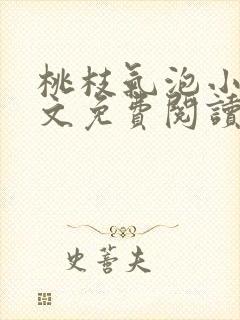 桃枝氣泡小
文免費閱讀
史蕾夫